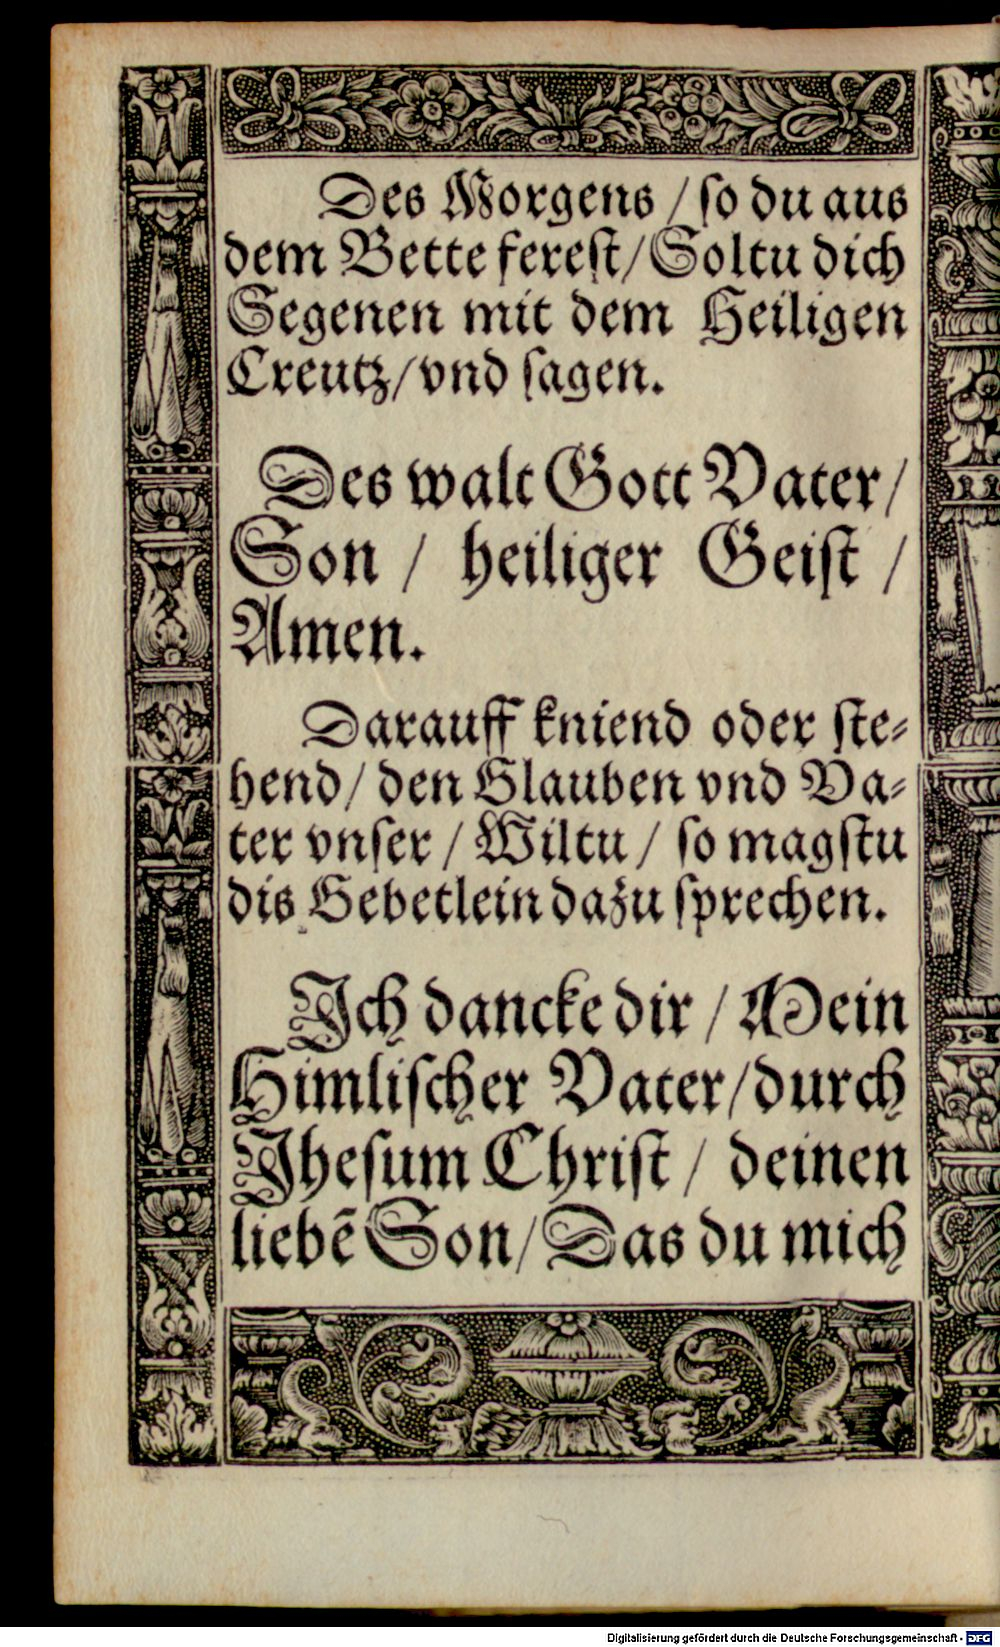 Des Morgens / ſo du aus
dem Bette fereſt / Soltu dich
Segenen mit dem Heiligen
Creutz / vnd ſagen.
Des walt Gott Vater /
Son / heiliger Geiſt /
Amen.
Darauff kniend oder ſte⸗
hend / den Glauben vnd Va⸗
ter vnſer / Wiltu / ſo magſtu
dis Gebetlein dazu ſprechen.
Ich dancke dir / Mein
Himliſcher Vater / durch
Jheſum Chriſt / deinen
liebē Son / Das du mich
Digitalisierung gefördert durch die Deutsche Forschungsgemeinschaft - DFG